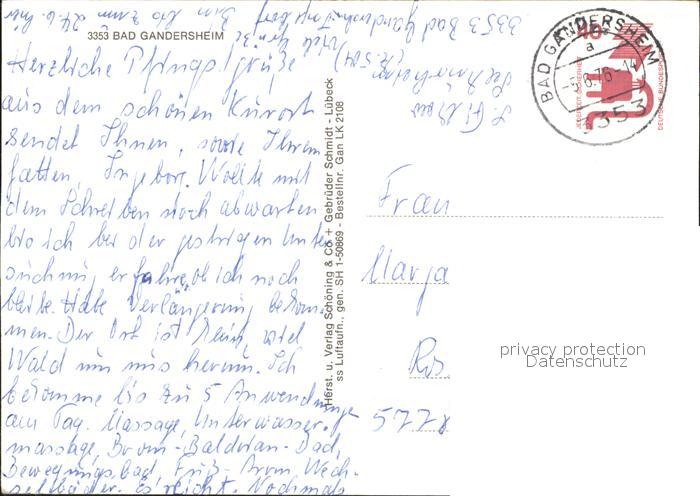 3353 BAD GANDERSHEIM
Herzliche Pfingstgrüße
aus dem schönen Kurort
sendet Ihnen, sowie Ihrem
Gatten, Ingeborg. Wollte mit
dem Schreiben noch abwarten
bis ich bei der gestrigen Unter
suchung erfahre, ob ich noch
bleibe. Habe Verlängerung bekom-
men. Der Ort ist klein, viel
Wald um uns herum. Ich
bekomme bis zu 5 Anwendungen
am Tag. Massage, Unterwasser-
massage, Brom-Baldrian-Bad,
Bewegungsbad, Fuß-Brom, Wech-
selbäder. Es reicht. Nochmals
viele Grüße
Bin bis zum 24.6. hier
3353 Bad Gandersheim
Herst. u. Verlag Schöning & Co + Gebrüder Schmidt - Lübeck
ss Luftaufn., gen. SH 1-50869 - Bestellnr. Gan LK 2108
BAD GANDERSHEIM
a
.6.76-14
3353
40
JEDERZEIT SICHERHEIT
DEUTSCHE BUNDESPOST
Frau
Marga
Ros
5778
privacy protection
Datenschutz